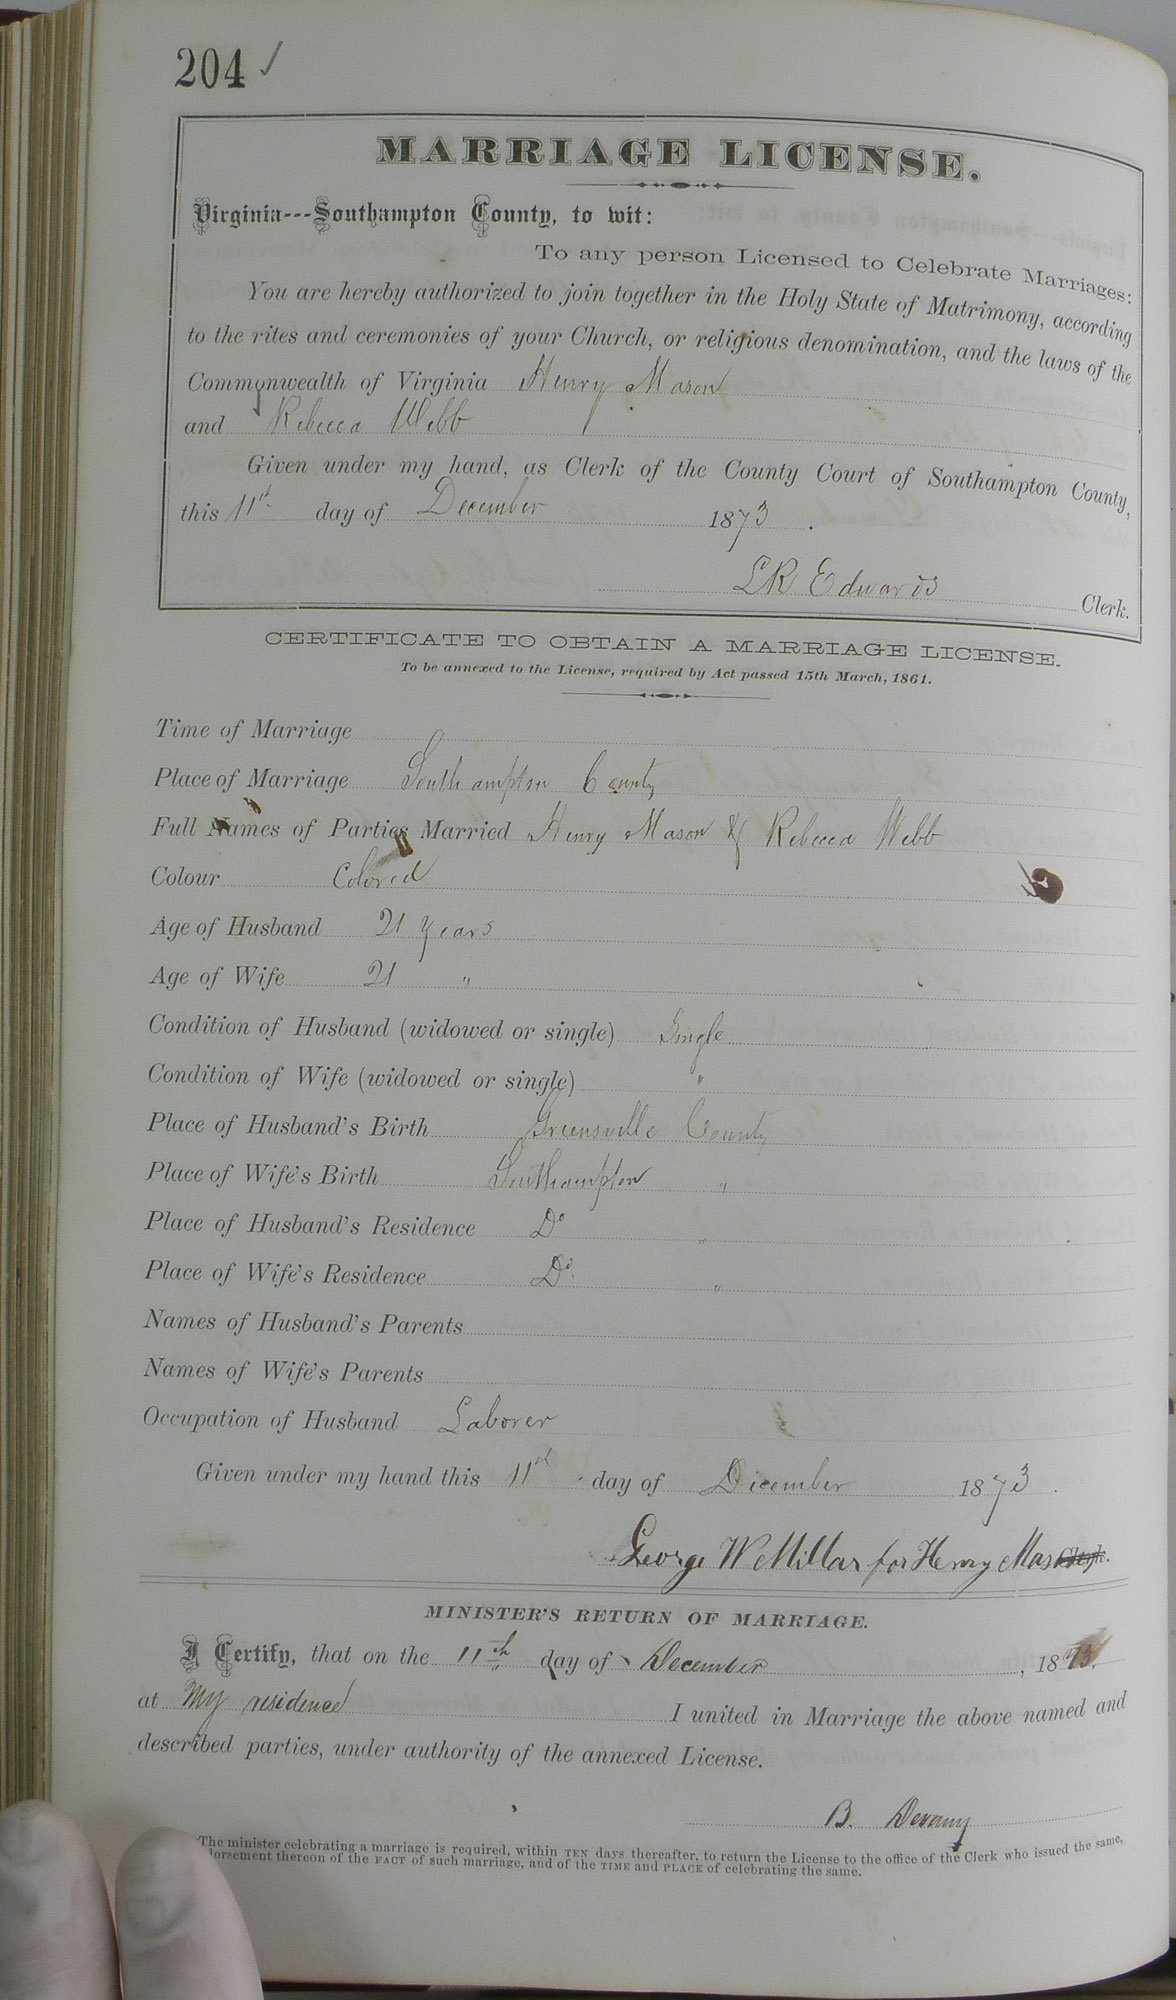 204 ✓
MARRIAGE LICENSE.
Virginia---Southampton County, to wit:
To any person Licensed to Celebrate Marriages:
You are hereby authorized to join together in the Holy State of Matrimony, according
to the rites and ceremonies of your Church, or religious denomination, and the laws of the
Commonwealth of Virginia Henry Mason
and Rebecca Webb
Given under my hand, as Clerk of the County Court of Southampton County,
this 11th day of December 1873.
LR Edwards Clerk.
CERTIFICATE TO OBTAIN A MARRIAGE LICENSE.
To be annexed to the License, required by Act passed 15th March, 1861.
Time of Marriage
Place of Marriage Southampton County
Full Names of Parties Married Henry Mason & Rebecca Webb
Colour Colored
Age of Husband 21 Years
Age of Wife 21 "
Condition of Husband (widowed or single) Single
Condition of Wife (widowed or single) "
Place of Husband's Birth Greensville County
Place of Wife's Birth Southampton "
Place of Husband's Residence Do "
Place of Wife's Residence Do "
Names of Husband's Parents
Names of Wife's Parents
Occupation of Husband Laborer
Given under my hand this 11th day of December 1873.
George W Millar for Henry Mas Clerk.
MINISTER'S RETURN OF MARRIAGE.
I Certify, that on the 11th day of December, 1873.
at My residence I united in Marriage the above named and
described parties, under authority of the annexed License.
B. Devany
The minister celebrating a marriage is required, within TEN days thereafter, to return the License to the office of the Clerk who issued the same,
dorsement thereon of the FACT of such marriage, and of the TIME and PLACE of celebrating the same.